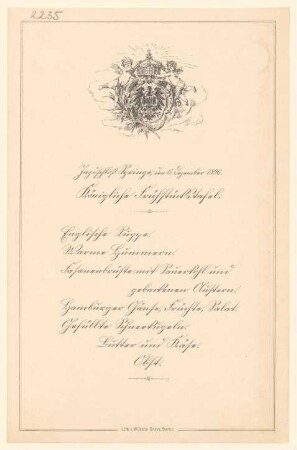 2235
Jagdschloß Springe, den 6. Dezember 1896.
Königliche Frühstückstafel.
Englische Suppe.
Warme Hummern.
Fasanenbrüste mit Sauerkohl und
gebackenen Austern.
Hamburger Gänse, Früchte, Salat.
Gefüllte Schneekugeln.
Butter und Käse.
Obst.